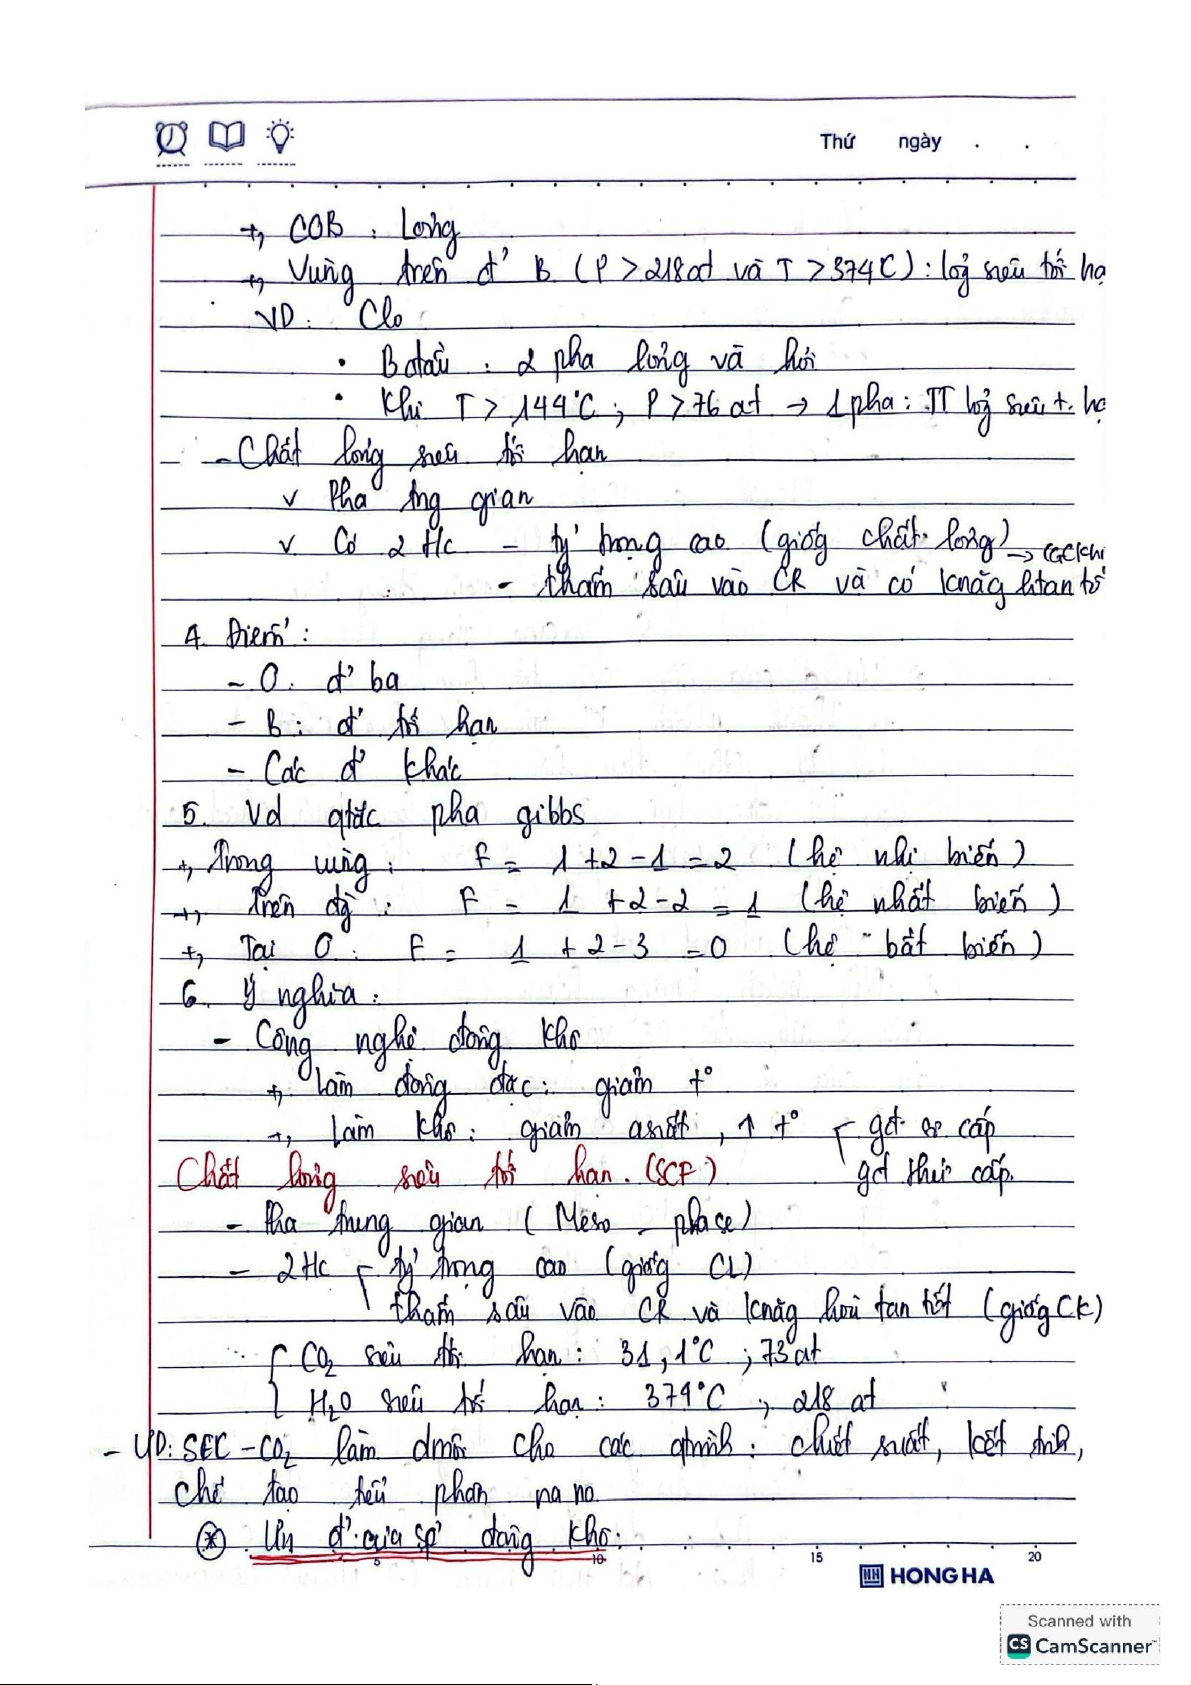 Thứ ngày . .
+, COB : Lỏng
+, Vùng trên đ' B (P > 218at và T > 374°C) : lỏg siêu tới hạ
VD : Clo
• B đầu : 2 pha lỏng và hơi
• Khi T > 144°C ; P > 76 at → 1 pha : TT lỏg siêu t. hạ
- Chất lỏng siêu tới hạn
v Pha tng gian
v Có 2 Hc - tỷ trọng cao (giốg chất lỏng)
- thấm sâu vào CR và có knăg htan tố → (GCKhí
4. Điểm :
- O : đ' ba
- B : đ' tới hạn
- Các đ' khác
5. Vd qtắc pha gibbs
+, Trong vùng : F = 1 + 2 - 1 = 2 (hệ nhị biến)
+, Trên đg : F = 1 + 2 - 2 = 1 (hệ nhất biến)
+, Tại O : F = 1 + 2 - 3 = 0 (hệ bất biến)
6. Ý nghĩa :
- Công nghệ đông khô
+, Làm đông đặc : giảm t°
+, Làm khô : giảm asuất, ↑ t° gđ sơ cấp
gđ thứ cấp.
Chất lỏng siêu tới hạn. (SCF)
- Pha trung gian (Meso - phase)
- 2Hc tỷ trọng cao (giốg CL)
thấm sâu vào CR và knăg hoà tan tốt (giốg CK)
CO2 siêu tới hạn : 31,1°C ; 73 at
H2O siêu tới hạn : 374°C ; 218 at
- ƯD: SFC - CO2 làm dmôi cho các qtrình : chiết suất, kết tinh,
chế tạo tiểu phân nano.
* Ưu đ' của sp' đông khô :
5 10 15 20
HONG HA
Scanned with
CS CamScanner